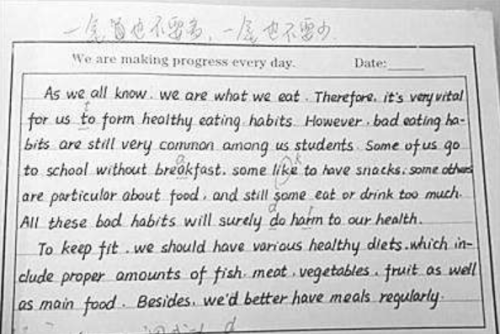 一定首也不要多,一定也不要少
We are making progress every day. Date:
As we all know, we are what we eat. Therefore, it's very vital
for us to form healthy eating habits. However, bad eating ha-
bits are still very common among us students. Some of us go
to school without breakfast, some like to have snacks, some others
are particular about food, and still some eat or drink too much.
All these bad habits will surely do harm to our health.
To keep fit, we should have various healthy diets, which in-
clude proper amounts of fish, meat, vegetables, fruit as well
as main food. Besides, we'd better have meals regularly.